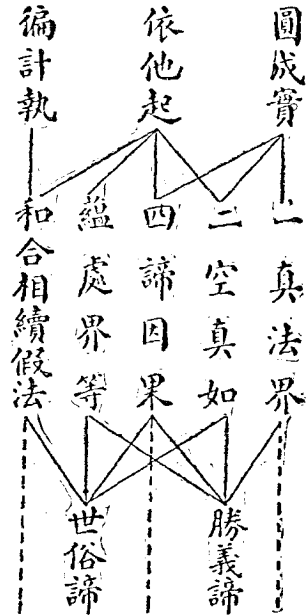 圓成實
依他起
徧計執
一真法界
二空真如
四諦因果
蘊處界等
和合相續假法
勝義諦
世俗諦